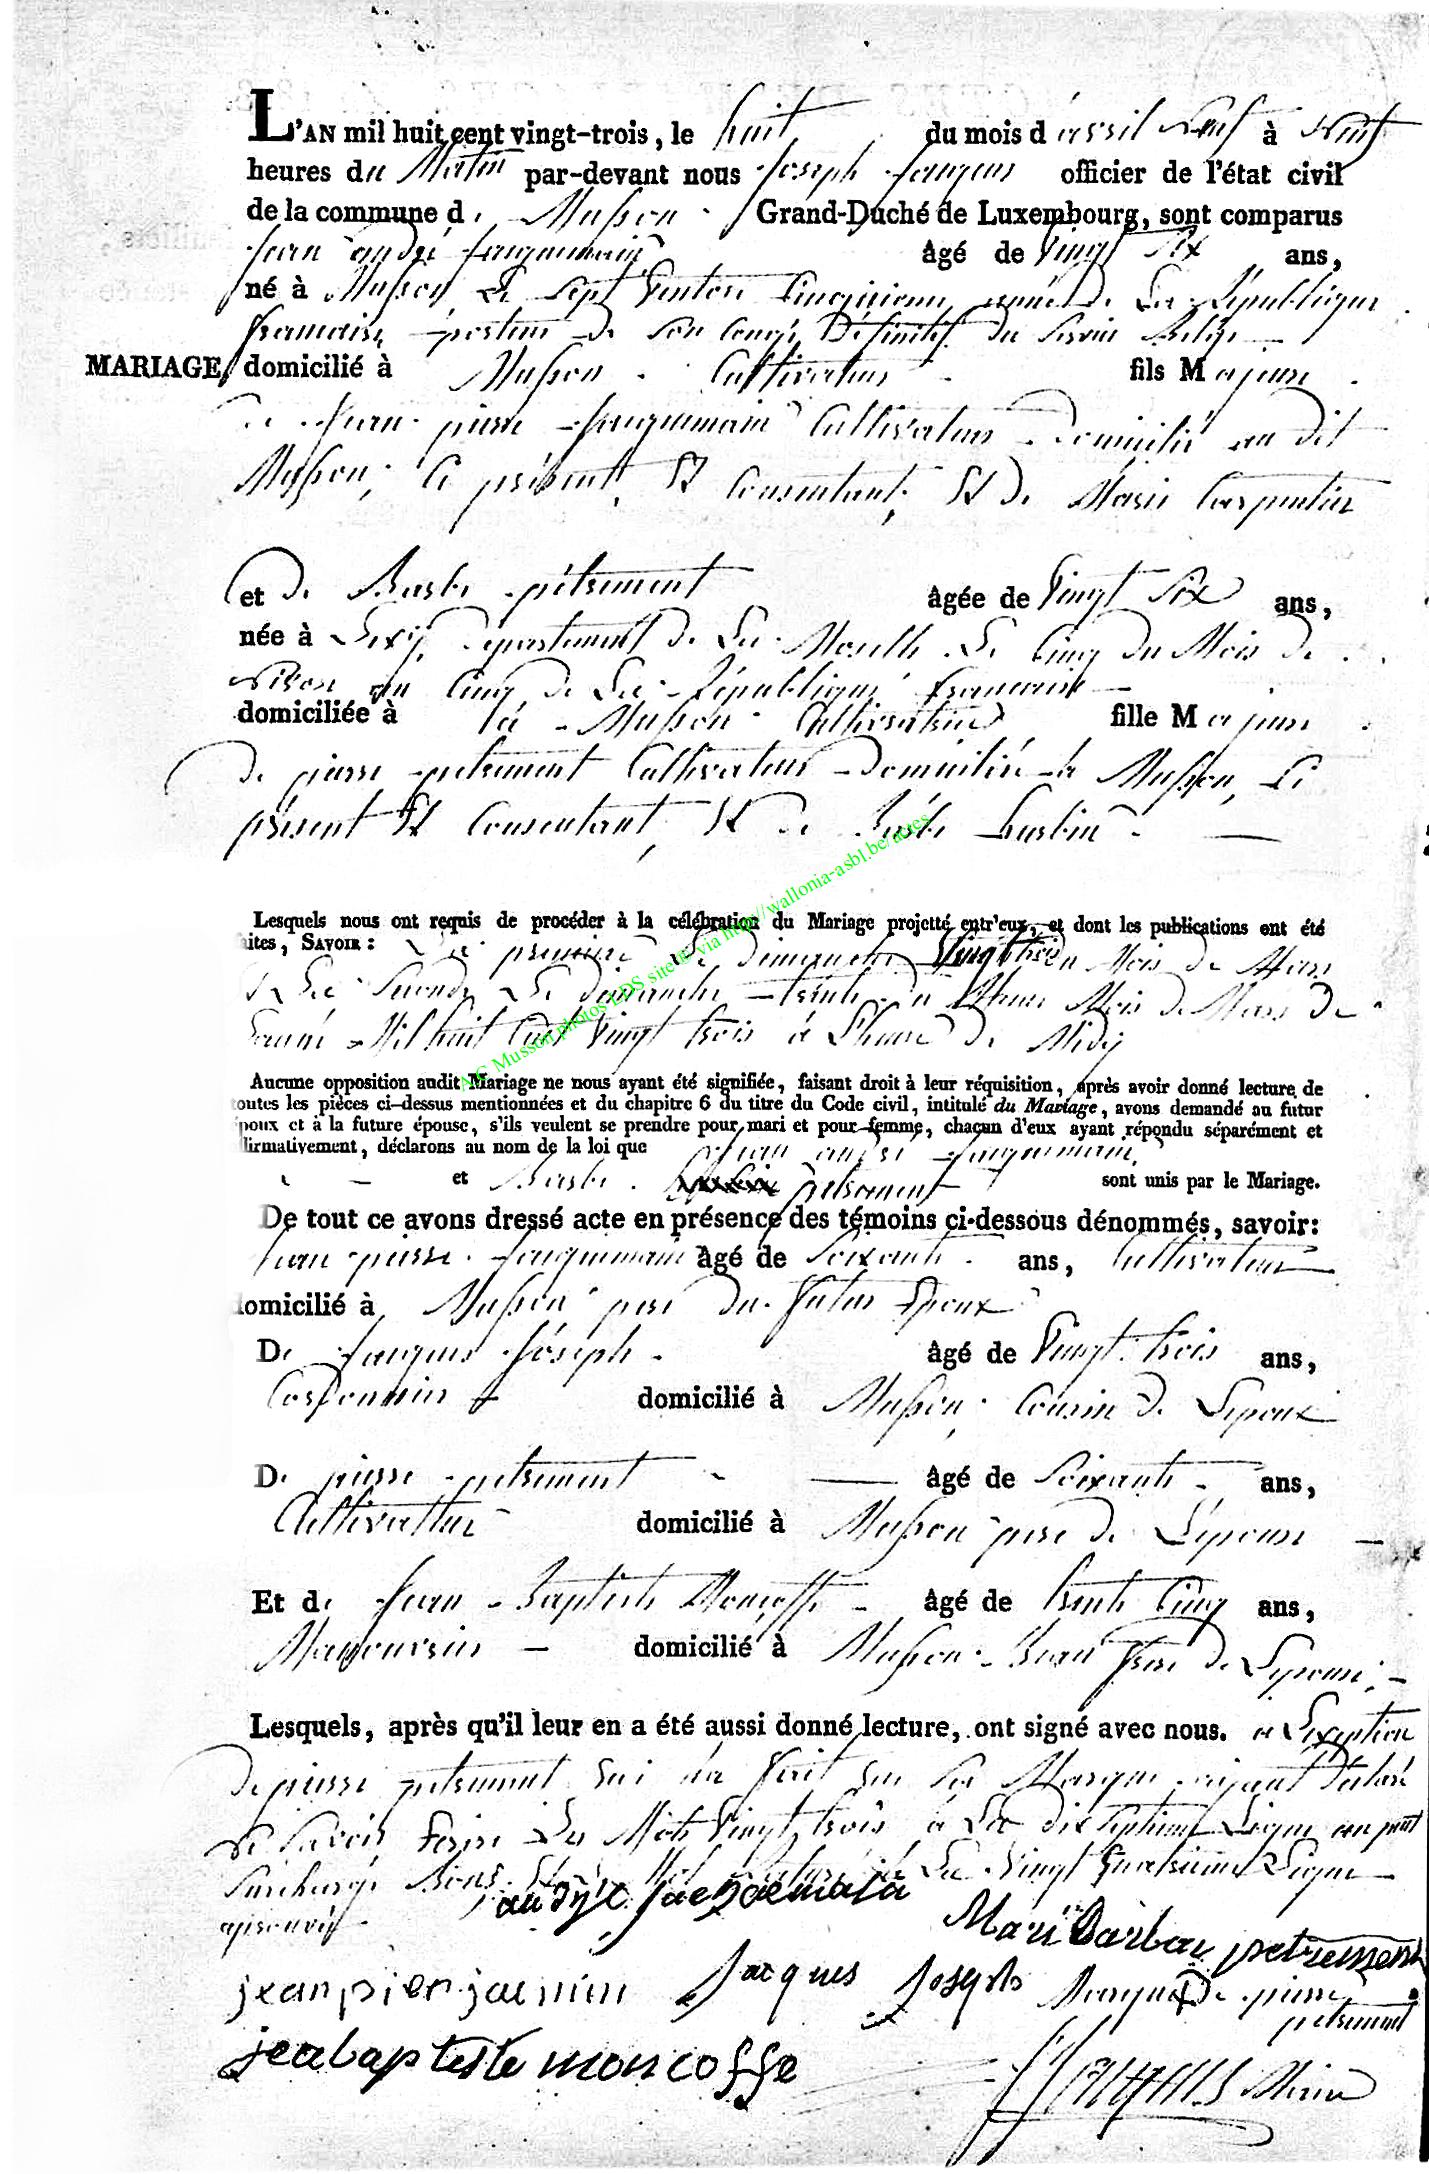 L'AN mil huit cent vingt-trois, le huit du mois d'avril Neuf à Neuf
heures du Matin par-devant nous Joseph Jacques officier de l'état civil
de la commune de Musson Grand-Duché de Luxembourg, sont comparus
Jean andré Jacquemain âgé de Vingt Six ans,
né à Musson Le Sept Ventose Cinquieme année de La République
francaise, porteur de Son Congé Définitif du
MARIAGE domicilié à Musson Cultivateur fils Majeur
de Jean pierre Jacquemain Cultivateur Domicilié au dit
Musson, Ci présent, Et Consentant, Et de Marie Carpentier
et De Barbe petrement âgée de Vingt Six ans,
née à Lexy, Departement de La Moselle Le Cinq du Mois de
an Cinq de La République francaise
domiciliée à à Musson Cultivatrice fille Majeure
De pierre petrement Cultivateur Domicilié à Musson, Ci
présent Et Consentant, Et de Barbe
Lesquels nous ont requis de procéder à la célébration du Mariage projetté entr'eux, et dont les publications ont été
aites, SAVOIR : La premiere Le Dimanche Vingt trois du Mois de Mars
Et La Seconde Le dimanche trente du Meme Mois de Mars de
Lanné Mil huit Cent Vingt trois à L'heure de Midy
Aucune opposition audit Mariage ne nous ayant été signifiée, faisant droit à leur réquisition, après avoir donné lecture de
toutes les pièces ci-dessus mentionnées et du chapitre 6 du titre du Code civil, intitulé du Mariage, avons demandé au futur
époux et à la future épouse, s'ils veulent se prendre pour mari et pour femme, chacun d'eux ayant répondu séparément et
ffirmativement, déclarons au nom de la loi que Jean andré Jacquemain
et Barbe petrement sont unis par le Mariage.
De tout ce avons dressé acte en présence des témoins ci-dessous dénommés, savoir:
Jean pierre Jacquemain âgé de Soixante ans, Cultivateur
domicilié à Musson pere du futur Epoux
De Jacques Joséph âgé de Vingt trois ans,
Cordonnier domicilié à Musson, Cousin de Lepoux
De pierre petrement âgé de Soixante ans,
Cultivatteur domicilié à Musson pere de L'épouse
Et de Jean Baptiste Moncoffe âgé de trente Cinq ans,
Manouvrier domicilié à Musson Beau frere de Lepouse
Lesquels, après qu'il leur en a été aussi donné lecture, ont signé avec nous. a L'exeption
De pierre petrement qui n'a fait que Sa Marque ayant Déclaré
Ne Savoir Ecrire Les Mots Vingt trois à La dix Septieme Ligne un peut
Surchargé Bons La Vingt Quatrieme Ligne
aprouvé
Mari Barbau petrement
jean pier jacmin Jacques Joseph Marque De pierre
petrement
jea baptiste moncoffe
Maire
A/C Musson photos LDS site © via http://wallonia-asbl.be/actes